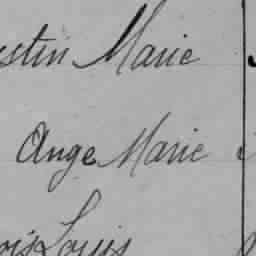 stin Marie
Ange Marie
ois Louis